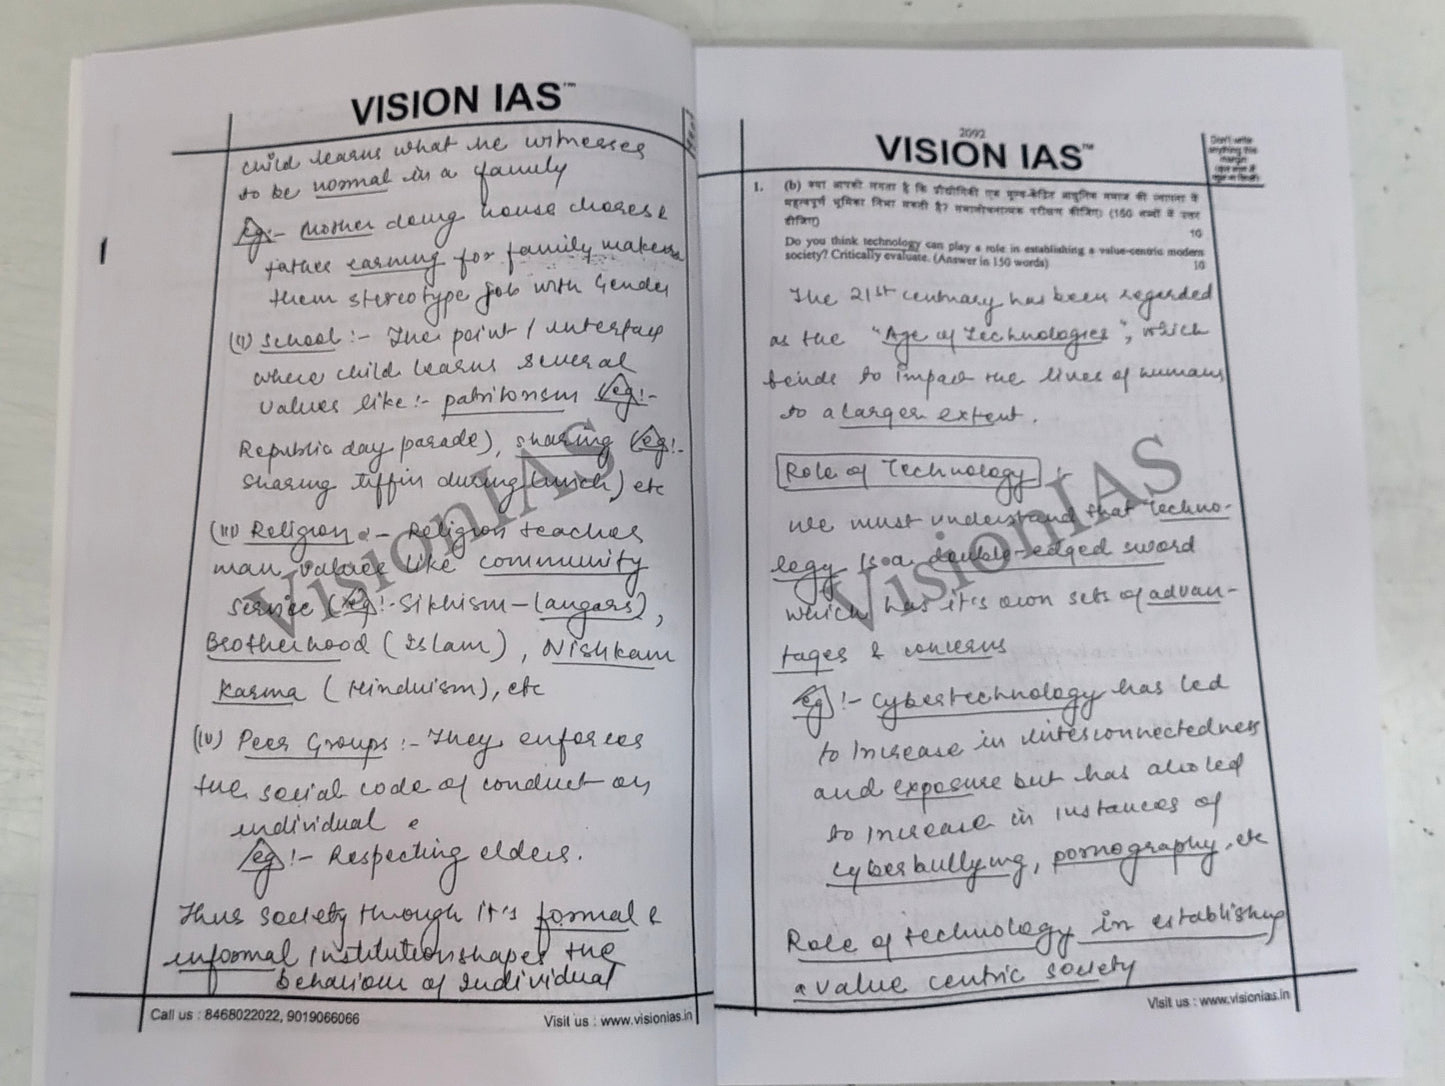 VISION IAS™
child learns what he witnesses
to be normal in a family
Eg:- Mother doing house chores &
father earning for family makes
them stereotype job with Gender
(ii) School :- The point / interface
where child learns several
values like :- patriotism (eg:-
Republic day parade), sharing (eg:-
sharing tiffin during lunch) etc
(iii) Religion :- Religion teaches
man values like community
service (eg:- Sikhism - langars),
Brotherhood (Islam), Nishkam
Karma (Hinduism), etc
(iv) Peer Groups :- They enforces
the social code of conduct on
individual
eg :- Respecting elders.
Thus society through it's formal &
informal institution shapes the
behaviour of Individual
VisionIAS
Call us : 8468022022, 9019066066
Visit us : www.visionias.in
2092
VISION IAS™
Don't write
anything this
margin
1. (b) क्या आपको लगता है कि प्रौद्योगिकी एक मूल्य-केंद्रित आधुनिक समाज की स्थापना में
महत्वपूर्ण भूमिका निभा सकती है? समालोचनात्मक परीक्षण कीजिए। (150 शब्दों में उत्तर
दीजिए)
10
Do you think technology can play a role in establishing a value-centric modern
society? Critically evaluate. (Answer in 150 words)
10
The 21st centuary has been regarded
as the "Age of Technologies", which
tends to impact the lives of humans
to a larger extent.
Role of Technology :-
We must understand that Techno-
logy is a double-edged sword
which has it's own sets of advan-
tages & concerns
eg :- Cybertechnology has led
to Increase in interconnectedness
and exposure but has also led
to increase in instances of
cyberbullying, pornography, etc
Role of technology in establishing
a value centric society
VisionIAS
Visit us : www.visionias.in